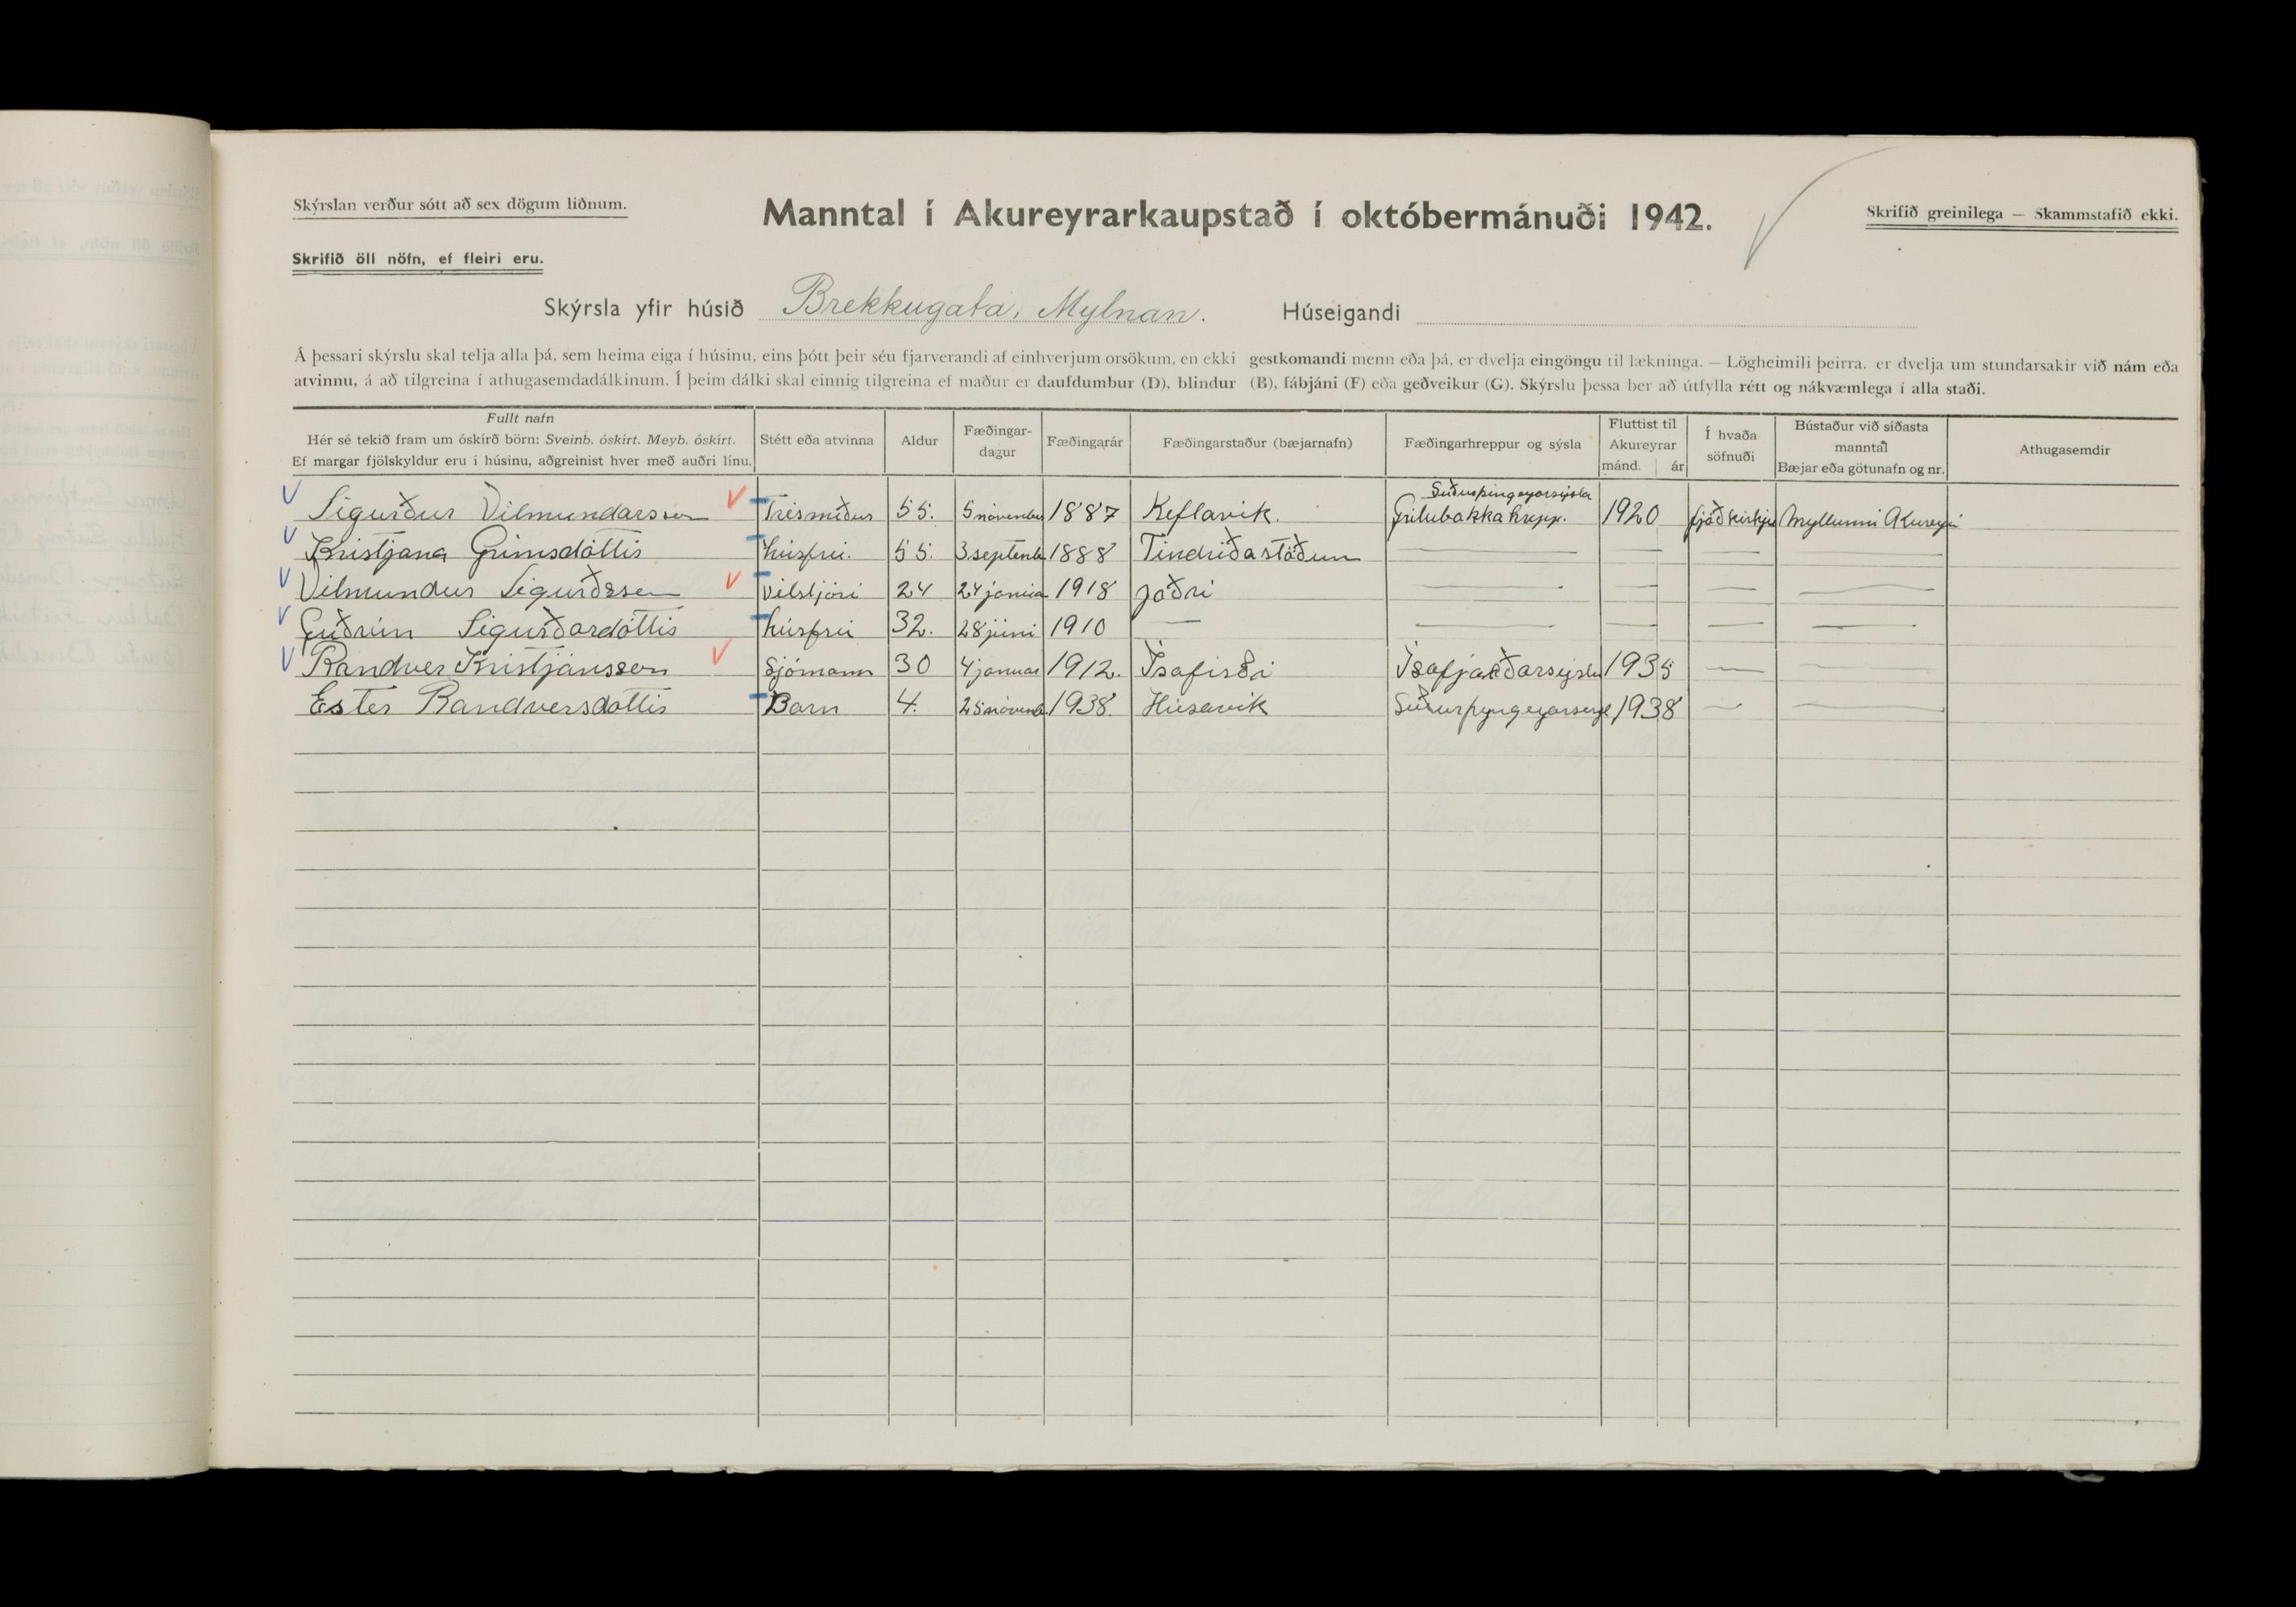 Skýrslan verður sótt að sex dögum liðnum.
Manntal í Akureyrarkaupstað í októbermánuði 1942.
Skrifið greinilega — Skammstafið ekki.
Skrifið öll nöfn, ef fleiri eru.
Skýrsla yfir húsið Brekkugata, Mylnan. Húseigandi
Á þessari skýrslu skal telja alla þá, sem heima eiga í húsinu, eins þótt þeir séu fjarverandi af einhverjum orsökum, en ekki gestkomandi menn eða þá, er dvelja eingöngu til lækninga. — Lögheimili þeirra, er dvelja um stundarsakir við nám eða
atvinnu, á að tilgreina í athugasemdadálkinum. Í þeim dálki skal einnig tilgreina ef maður er daufdumbur (D), blindur (B), fábjáni (F) eða geðveikur (G). Skýrslu þessa ber að útfylla rétt og nákvæmlega í alla staði.
Fullt nafn
Hér sé tekið fram um óskírð börn: Sveinb. óskírt. Meyb. óskírt.
Ef margar fjölskyldur eru í húsinu, aðgreinist hver með auðri línu.
Stétt eða atvinna
Aldur
Fæðingar-
dagur
Fæðingarár
Fæðingarstaður (bæjarnafn)
Fæðingarhreppur og sýsla
Fluttist til
Akureyrar
mánd. ár
Í hvaða
söfnuði
Bústaður við síðasta
manntal
Bæjar eða götunafn og nr.
Athugasemdir
Suðurþingeyarsýsla
Sigurður Vilmundarsson Trésmíður 55. 5 november 1887 Keflavik. Grítubakka hrepp. 1920 þjóðkirkju Myllunni Akureyri
Kristjana Grímsdóttir húsfrú. 55. 3 septembe 1888 Tindriðastöðum — — — —
Vilmundur Sigurðsson vélstjóri 24 24 janúa 1918 Jaðri — — — —
Guðrún Sigurðardóttir húsfrú 32. 28 júni 1910 — — — — —
Randver Kristjánsson Sjómann 30 4 januar 1912. Ísafirði Ísafjarðarsýslu 1935 — —
Ester Randversdóttir Barn 4. 25 novemb. 1938. Húsavik Suðurþyngeyarsysl 1938 — —